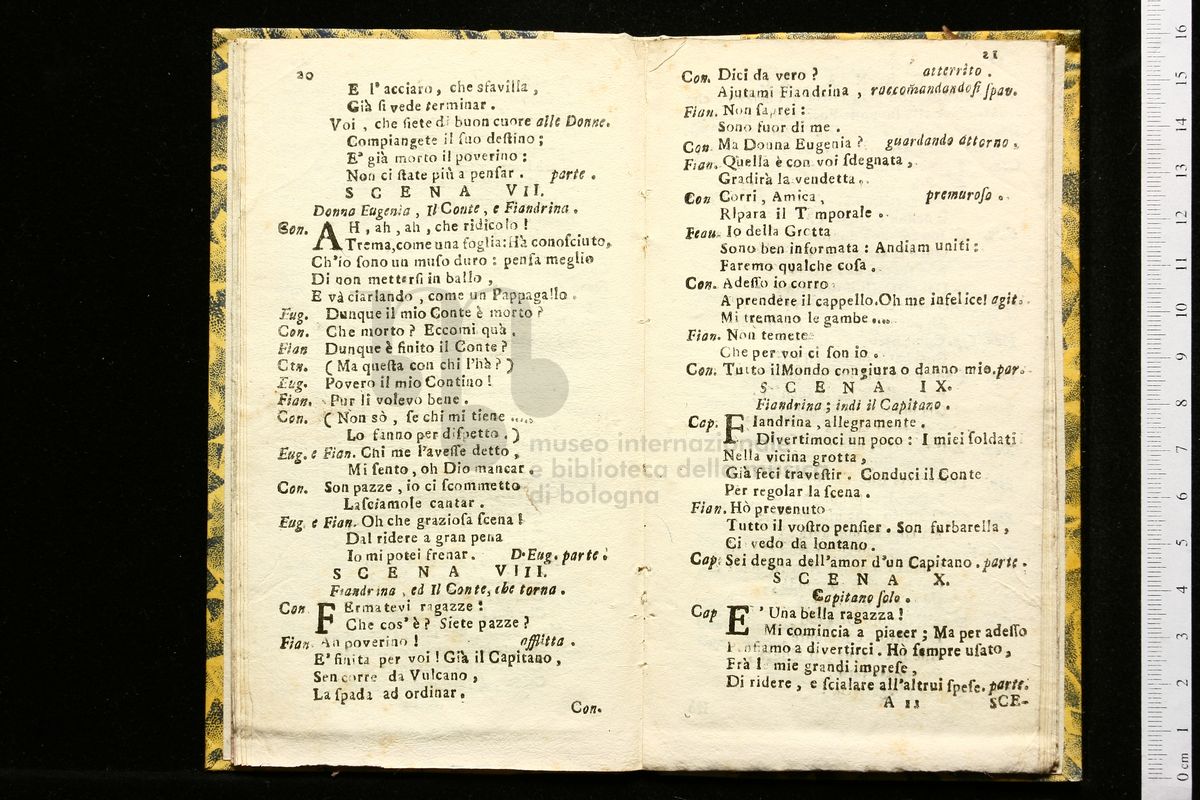 20
E l' acciaro, che sfavilla,
Già si vede terminar.
Voi, che siete di buon cuore alle Donne.
Compiangete il suo destino;
E' già morto il poverino:
Non ci state più a pensar. parte.
SCENA VII.
Donna Eugenia, Il Conte, e Fiandrina.
Con. AH, ah, ah, che ridicolo!
Trema,come una foglia: Hà conosciuto,
Ch'io sono un muso duro: pensa meglio
Di non mettersi in ballo,
E và ciarlando, come un Pappagallo.
Eug. Dunque il mio Conte è morto?
Con. Che morto? Eccomi quà.
Fian Dunque è finito il Conte?
Con. (Ma questa con chi l'hà?)
Eug. Povero il mio Contino!
Fian. Pur li volevo bene.
Con. (Non sò, se chi mi tiene ....
Lo fanno per dispetto.)
Eug. e Fian. Chi me l'avesse detto,
Mi sento, oh Dio mancar.
Con. Son pazze, io ci scommetto
Lasciamole cantar.
Eug. e Fian. Oh che graziosa scena!
Dal ridere a gran pena
Io mi potei frenar. D. Eug. parte.
SCENA VIII.
Fiandrina, ed Il Conte, che torna.
Con FErmatevi ragazze!
Che cos'è? Siete pazze?
Fian. Ah poverino! afflitta.
E' finita per voi! Già il Capitano,
Sen corre da Vulcano,
La spada ad ordinar.
Con.
21
Con. Dici da vero? atterrito.
Ajutami Fiandrina, raccomandandosi spav.
Fian. Non saprei:
Sono fuor di me.
Con. Ma Donna Eugenia? guardando attorno.
Fian. Quella è con voi sdegnata,
Gradirà la vendetta.
Con Corri, Amica, premuroso.
RIpara il T mporale.
Feau. Io della Grotta
Sono ben informata: Andiam uniti:
Faremo qualche cosa.
Con. Adesso io corro
A prendere il cappello. Oh me infelice! agit.
Mi tremano le gambe ....
Fian. Non temete
Che per voi ci son io.
Con. Tutto il Mondo congiura o danno mio. par.
SCENA IX.
Fiandrina; indi il Capitano.
Cap. FIandrina, allegramente.
Divertimoci un poco: I miei soldati
Nella vicina grotta,
Già feci travestir. Conduci il Conte
Per regolar la scena.
Fian. Hò prevenuto
Tutto il vostro pensier. Son furbarella,
Ci vedo da lontano.
Cap. Sei degna dell'amor d'un Capitano. parte.
SCENA X.
Capitano solo.
Cap E' Una bella ragazza!
Mi comincia a piacer; Ma per adesso
Pensiamo a divertirci. Hò sempre usato,
Frà le mie grandi imprese,
Di ridere, e scialare all'altrui spese. parte.
A 11 SCE-
museo internazionale
e biblioteca della musica
di bologna
0 cm 1 2 3 4 5 6 7 8 9 10 11 12 13 14 15 16